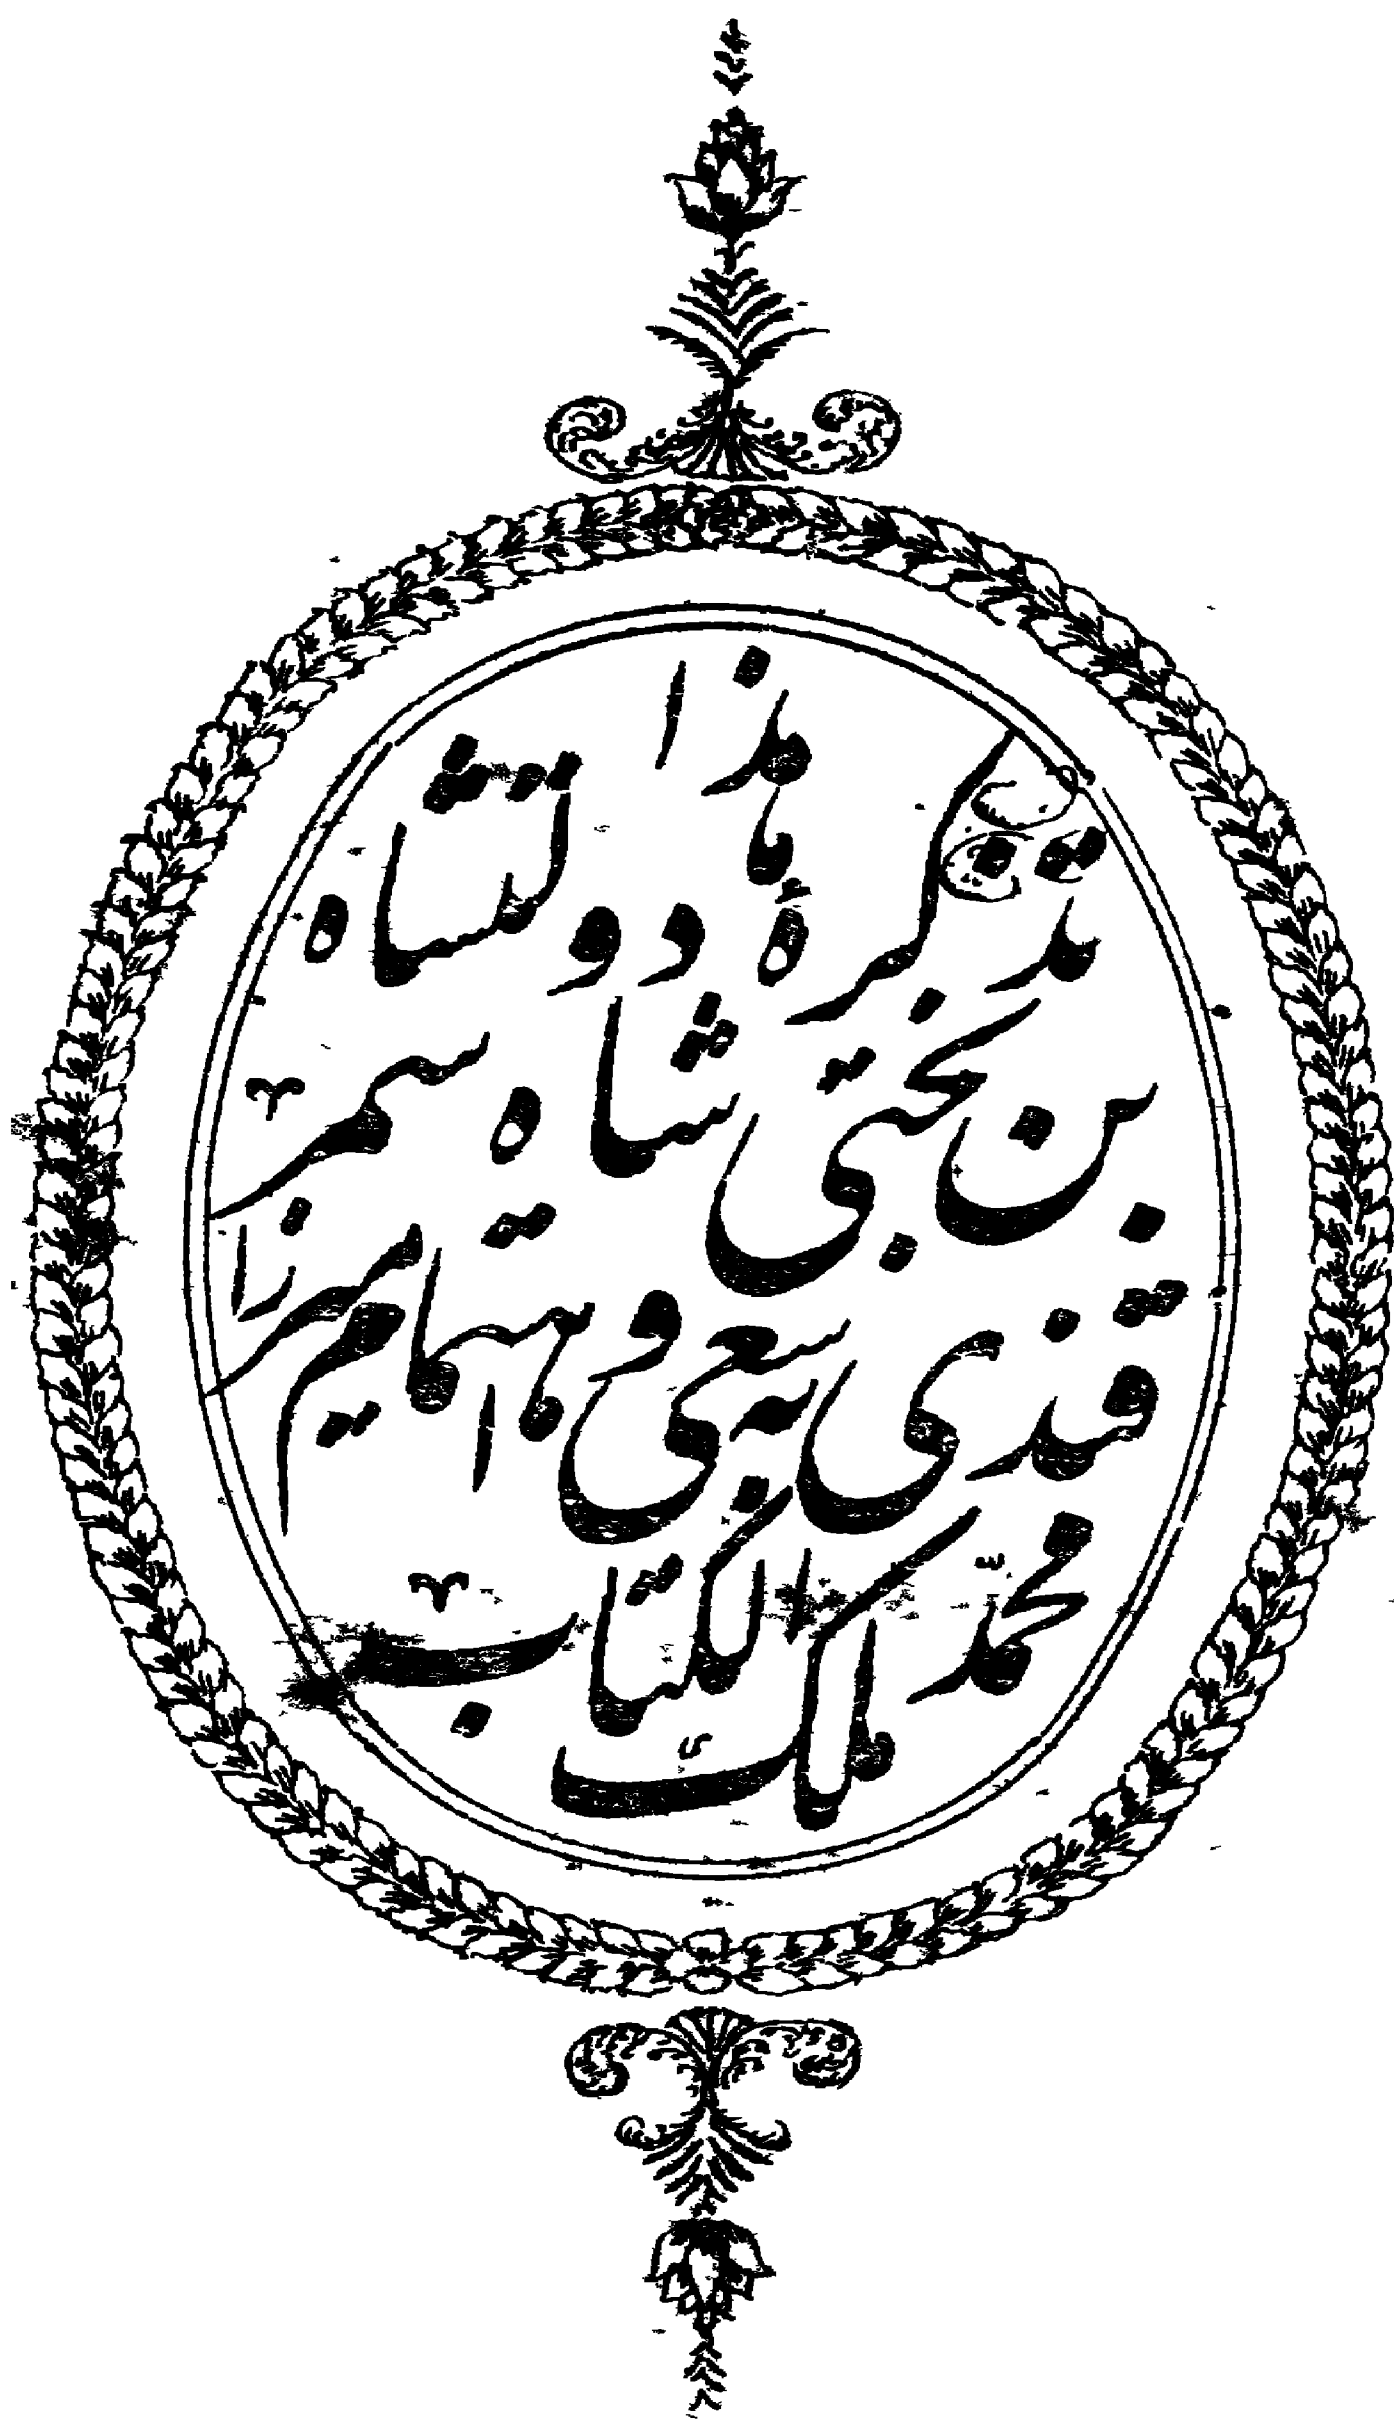 هذا
تذکرهٔ دولتشاه
بن بختی شاه سمر
قندی بسعی و اهتمام میرزا
محمّد ملک الکتاب